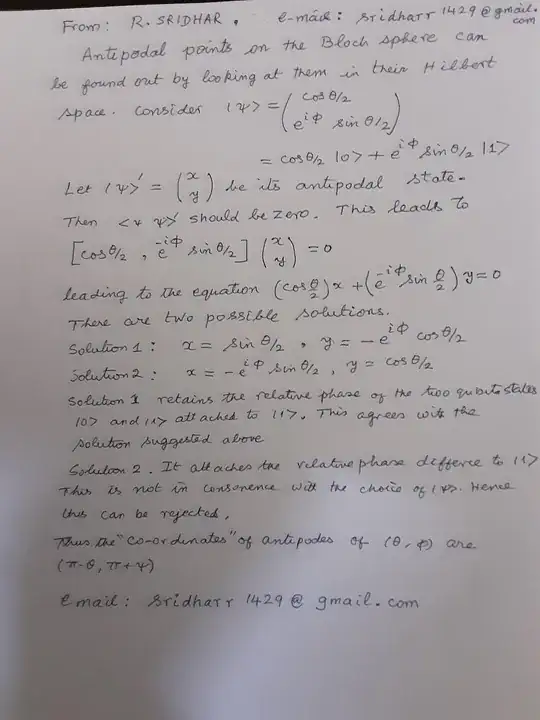 From: R. SRIDHAR, e-mail: sridharr1429@gmail.com
Antipodal points on the Bloch sphere can
be found out by looking at them in their Hilbert
space. Consider |ψ> = (cos θ/2
e^{iϕ} sin θ/2)
= cos θ/2 |0> + e^{iϕ} sin θ/2 |1>
Let |ψ>' = (x
y) be its antipodal state.
Then <ψ ψ>' should be zero. This leads to
[cos θ/2, e^{-iϕ} sin θ/2] (x
y) = 0
leading to the equation (cos θ/2) x + (e^{-iϕ} sin θ/2) y = 0
There are two possible solutions.
Solution 1: x = sin θ/2, y = -e^{iϕ} cos θ/2
Solution 2: x = -e^{-iϕ} sin θ/2, y = cos θ/2
Solution 1 retains the relative phase of the two qubit states
|0> and |1> attached to |1>. This agrees with the
solution suggested above
Solution 2. It attaches the relative phase differce to |1>
This is not in consonence with the choice of |ψ>. Hence
this can be rejected.
Thus the "co-ordinates" of antipodes of (θ, ϕ) are
(π-θ, π+ψ)
email: sridharr1429@gmail.com